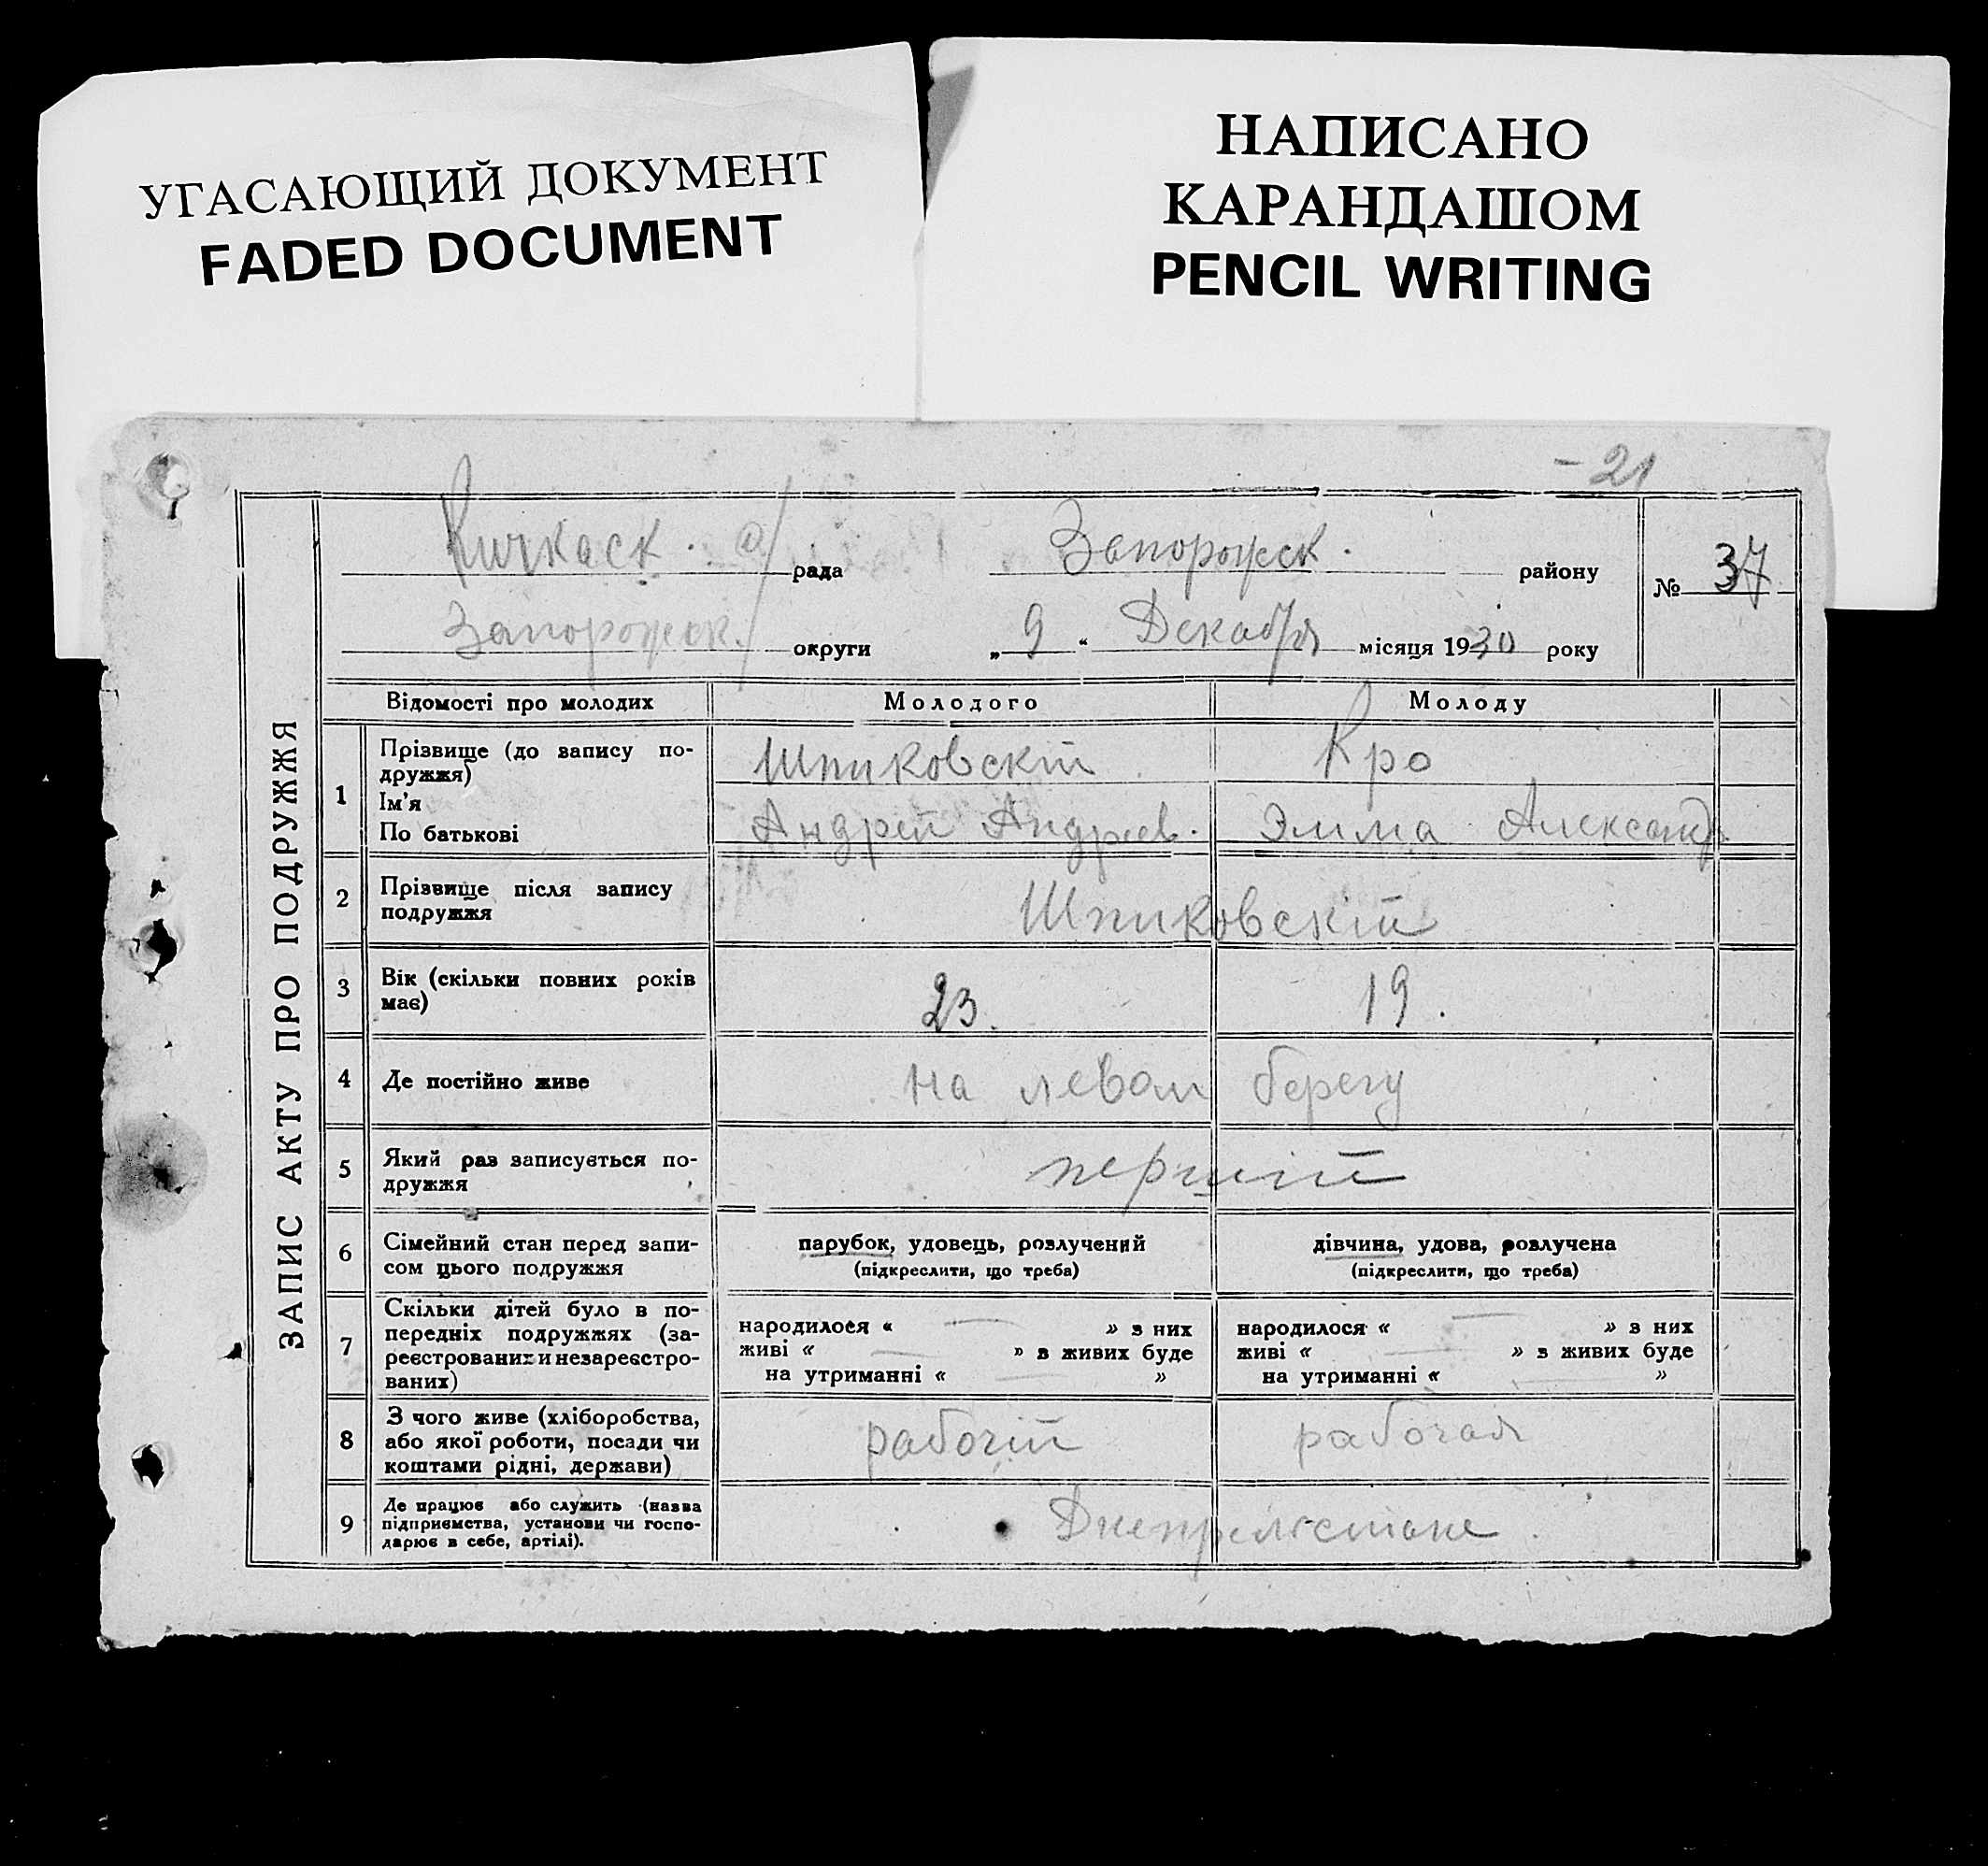 УГАСАЮЩИЙ ДОКУМЕНТ
FADED DOCUMENT
НАПИСАНО
КАРАНДАШОМ
PENCIL WRITING
– 21
ЗАПИС АКТУ ПРО ПОДРУЖЖЯ
Кичкаск. рада Запорожск. району
№ 37
Запорожск. округи „ 9 “ Декабря місяця 1930 року
Відомості про молодих Молодого Молоду
1 Прізвище (до запису по- Шпиковскій Кро
дружжя)
Ім’я
По батькові Андрей Андреев. Элма Александр.
2 Прізвище після запису
подружжя Шпиковскій
3 Вік (скільки повних років 23. 19.
має)
4 Де постійно живе на левом берегу
5 Який раз записується по- первий
дружжя
6 Сімейний стан перед запи- парубок, удовець, розлучений дівчина, удова, розлучена
сом цього подружжя (підкреслити, що треба) (підкреслити, що треба)
7 Скільки дітей було в по- народилося « — » з них народилося « — » з них
передніх подружжях (за- живі « — » з живих буде живі « — » з живих буде
реєстрованих и незареєстро- на утриманні « — » на утриманні « — »
ваних)
8 З чого живе (хліборобства,
або якої роботи, посади чи рабочій рабочая
коштами рідні, держави)
9 Де працює або служить (назва
підприємства, установи чи госпо-
дарює в себе, артілі).